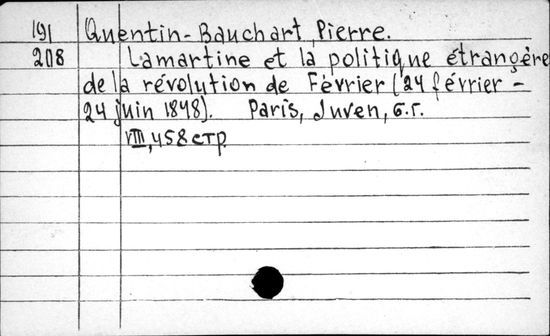 191 Quentin-Bauchart, Pierre.
208 Lamartine et la politique étrangère
de la révolution de Février (24 février -
24 juin 1848). Paris, Juven, б.г.
VIII, 458 стр.